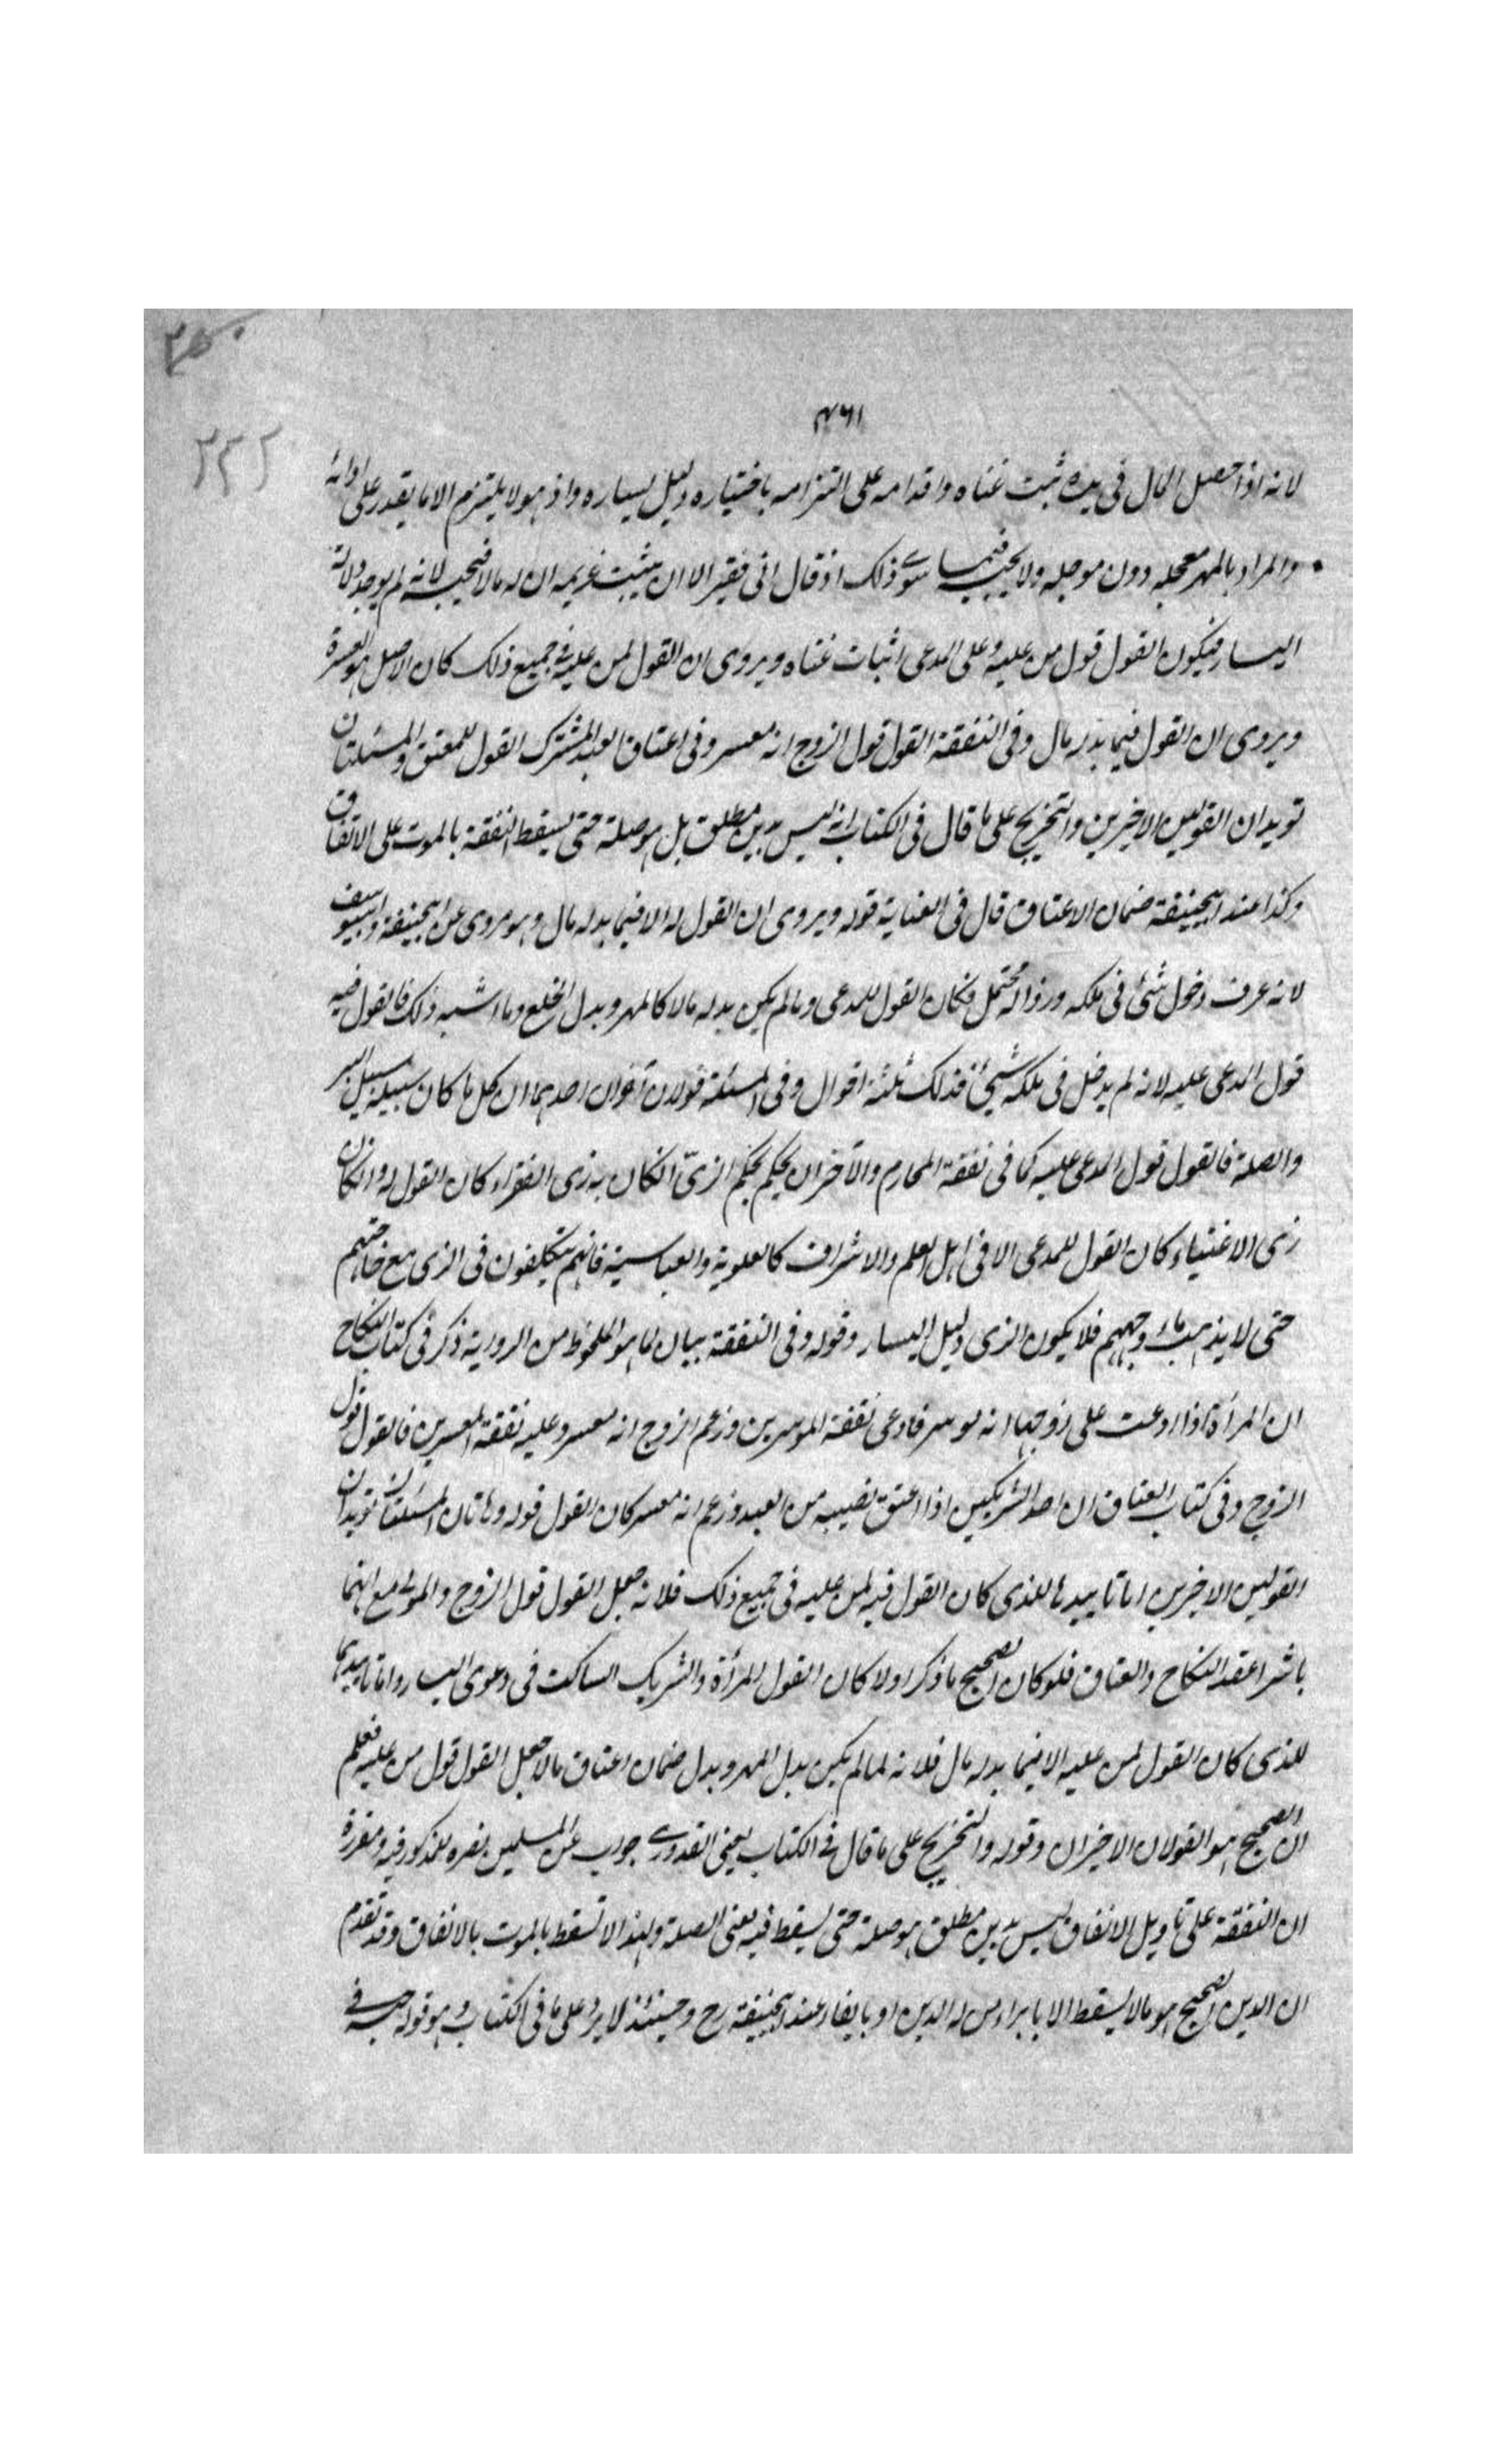 ۳۵۰
۴۶۱
۲۳۲
لانه اذا حصل المال فى يده ثبت غناه واقدامه على التزامه باختياره دليل يساره واذ هو لا يلتزم الا ما يقدر على ادائه
والمراد بالمهر معجله دون موجله ولا يحبس فيما سوى ذلك اذ قال انى فقير الا ان يثبت غريمه ان له مالا فيحبسه لانه لم يوجد دلالة
اليسار فيكون القول قول من عليه وعلى المدعى اثبات غناه ويروى ان القول لمن عليه فى جميع ذلك كان الاصل هو العسرة
ويروى ان القول فيما بدله مال وفى النفقة القول قول الزوج انه معسر وفى اعتاق العبد المشترك القول للمعتق والمسئلتان
تويدان القولين الاخيرين والتخريج على ما قال فى الكتاب انه ليس بدين مطلق بل هو صلة حتى يسقط النفقة بالموت على الاتفاق
وكذا عند ابيحنيفة ضمان الاعتاق قال فى العناية قوله ويروى ان القول له الا فيما بدله مال وهو مروى عن ابيحنيفة وابييوسف
لانه عرف دخول شئ فى ملكه وزواله محتمل فكان القول للمدعى وما لم يكن بدله مالا كالمهر وبدل الخلع وما اشبه ذلك فالقول فيه
قول المدعى عليه لانه لم يدخل فى ملكه شيئ فذلك ثلثة اقوال وفى المسئلة قولان آخران احدهما ان كل ما كان سبيله سبيل البر
والصلة فالقول قول المدعى عليه كما فى نفقة المحارم والآخر ان يحكم بحكم الزىّ ان كان به زى الفقراء كان القول له وان كان
زى الاغنياء كان القول للمدعى الا فى اهل العلم والاشراف كالعلوية والعباسية فانهم يتكلفون فى الزى مع حاجتهم
حتى لا يذهب ماء وجههم فلا يكون الزى دليل اليسار وقوله وفى النفقة بيان لما هو المحفوظ من الرواية ذكر فى كتاب النكاح
ان المرأة اذا ادعت على زوجها انه موسر فادعى نفقة الموسرين وزعم الزوج انه معسر وعليه نفقة المعسرين فالقول قول
الزوج وفى كتاب العتاق ان احد الشريكين اذا اعتق نصيبه من العبد وزعم انه معسر كان القول قوله وهاتان المسئلتان تويدان
القولين الاخيرين اما تاييدها للذى كان القول فيه لمن عليه فى جميع ذلك فلانه جعل القول قول الزوج والمولى مع انهما
باشرا عقد النكاح والعتاق فلو كان الصحيح ما ذكر اولا كان القول للمرأة والشريك الساكت فى دعوى اليسار واما تاييدهما
للذى كان القول لمن عليه الا فيما بدله مال فلانه لما لم يكن بدل المهر وبدل ضمان اعتاق مالا جعل القول قول من عليه فعلم
ان الصحيح هو القولان الاخيران وقوله والتخريج على ما قال فى الكتاب يعنى القدورى جواب عن المسلمين نصره للمذكور فيه ومقررة
ان النفقة على تاويل الانفاق ليس بدين مطلق هو صلة حتى يسقط فيه يعنى الصلة ولهذا لا تسقط بالموت بالاتفاق وقد تقدم
ان الدين الصحيح هو ما لا يسقط الا بابراء من له الدين او بايفاء عند ابيحنيفة رح وحينئذ لا يرد على ما فى الكتاب وهو قوله حبسه فى